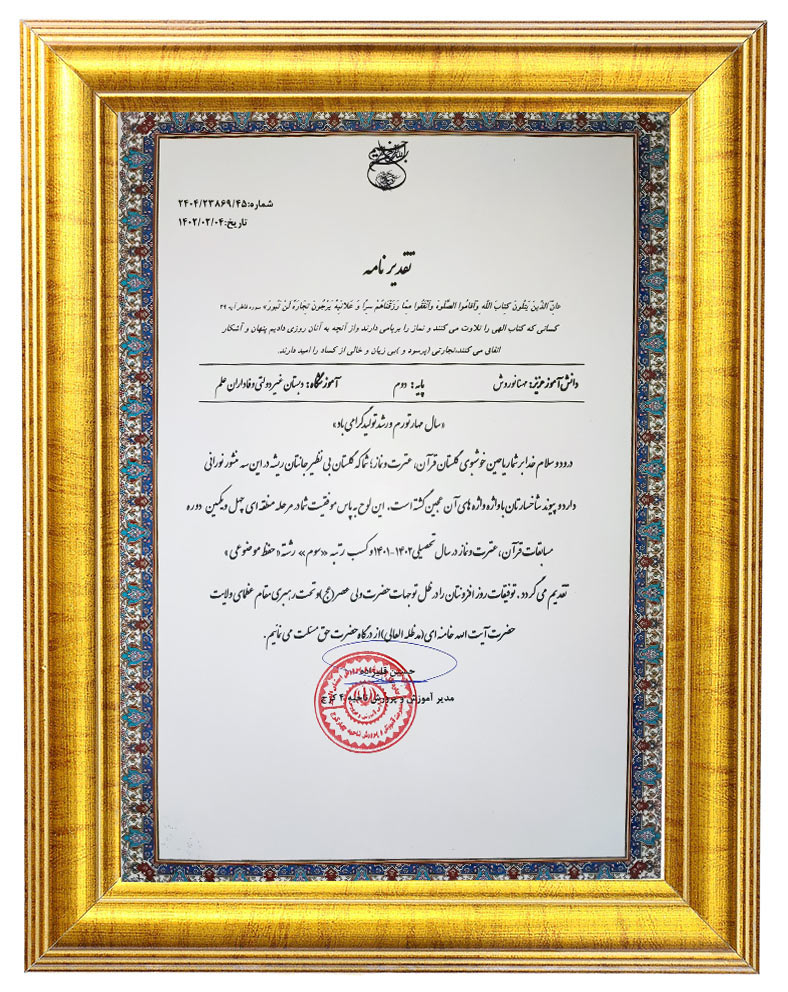 بسم الله الرحمن الرحیم
شماره:۲۴۰۴/۲۳۸۶۹/۴۵
تاریخ:۱۴۰۲/۰۲/۰۴
تقدیر نامه
«انّ الّذینَ یَتلُونَ کتابَ اللّه وَأقامُوا الصَّلوة وَأنْفَقُوا ممّا رَزَقناهُمْ سِرّاً وَ عَلانِیَةً یَرْجُونَ تِجارَةً لَنْ تَبور» سوره فاطر آیه ۲۹
کسانی که کتاب الهی را تلاوت می کنند و نماز را برپامی دارند واز آنچه به آنان روزی دادیم پنهان و آشکار
انفاق می کنند،تجارتی (پرسود و )بی زیان و خالی از کساد را امید دارند.
دانش آموز عزیز: مهنا نوروش پایه: دوم آموزشگاه: دبستان غیر دولتی وفاداران علم
«سال مهار تورم و رشد تولید گرامی باد»
درود و سلام خدا بر شما ریاحین خوشبوی گلستان قرآن، عترت و نماز؛ شما که گلستان بی نظیر جانتان ریشه در این سه منشور نورانی
دارد و پیوند شاخسارتان با واژه واژه های آن عجین گشته است. این لوح به پاس موفقیت شما در مرحله منطقه ای چهل و یکمین دوره
مسابقات قرآن، عترت و نماز در سال تحصیلی ۱۴۰۲-۱۴۰۱ و کسب رتبه «سوم» رشته «حفظ موضوعی»
تقدیم می گردد. توفیقات روز افزونتان را در ظل توجهات حضرت ولی عصر (عج) و تحت رهبری مقام عظمای ولایت
حضرت آیت الله خامنه ای (مد ظله العالی) از درگاه حضرت حق مسئلت می نمائیم.
حسین قلیزاده
مدیر آموزش و پرورش ناحیه ۴ کرج